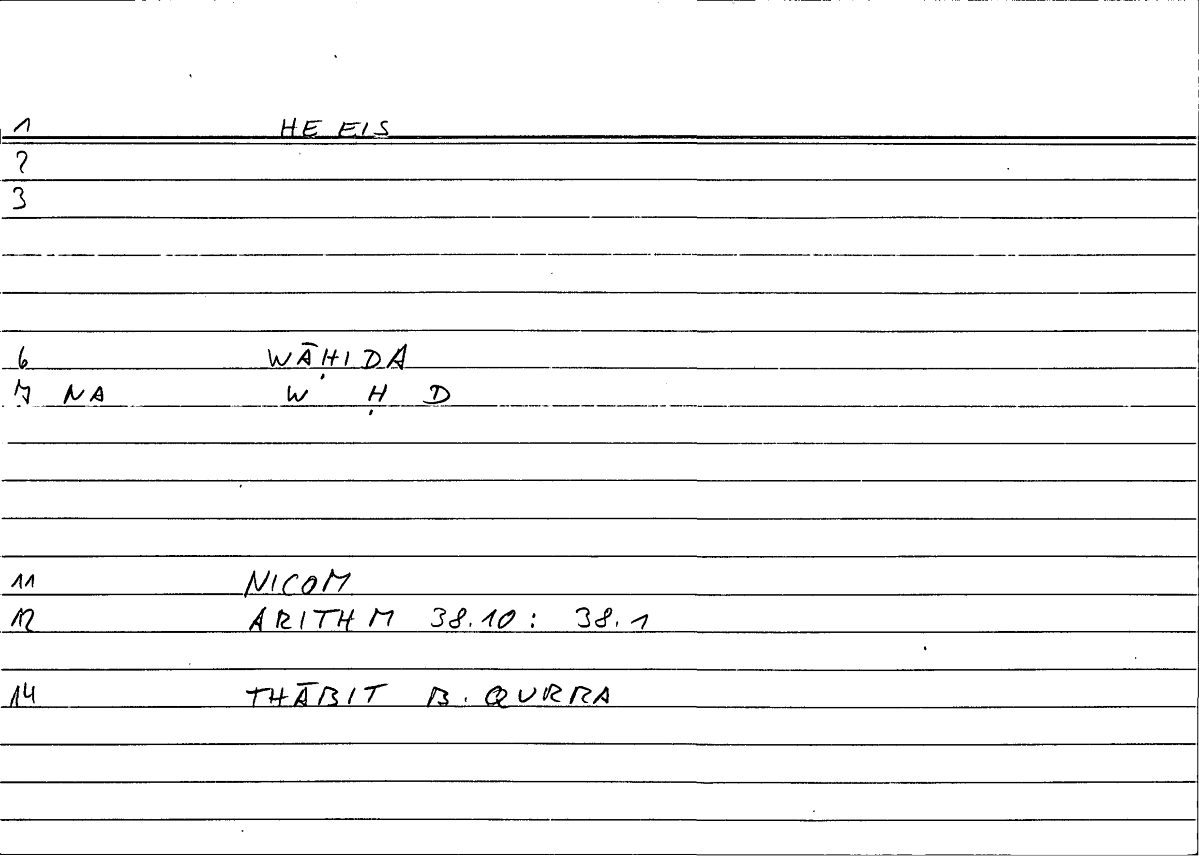 1 HE EIS
2
3
6 WĀḤIDA
7 NA W Ḥ D
11 NICOM
12 ARITHM 38.10: 38.1
14 THĀBIT B. QURRA